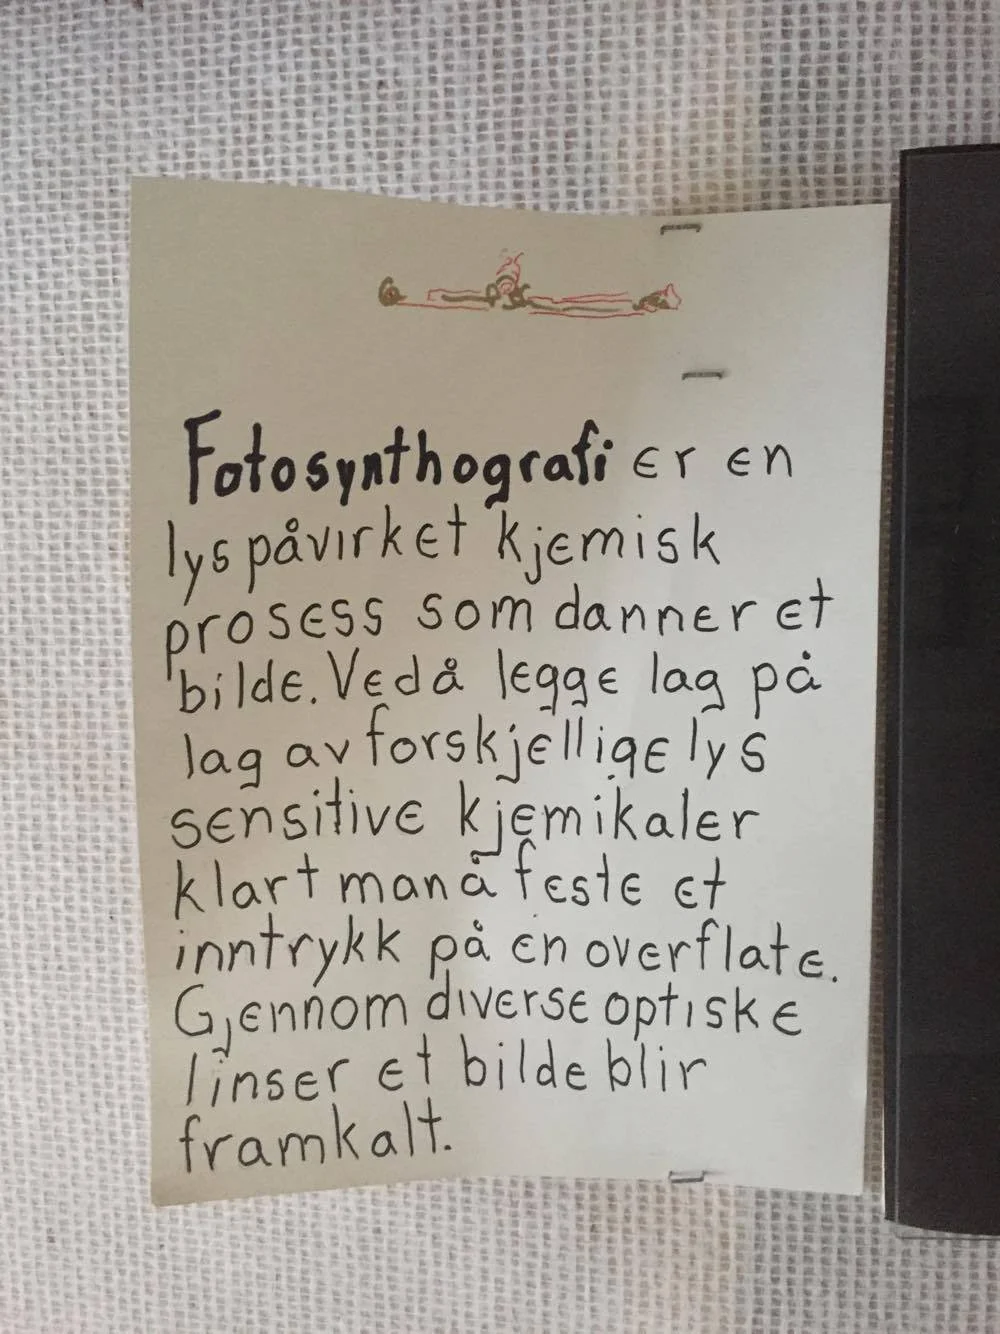 Fotosynthografi er en
lyspåvirket kjemisk
prosess som danner et
bilde. Ved å legge lag på
lag av forskjellige lys
sensitive kjemikaler
klart man å feste et
inntrykk på en overflate.
Gjennom diverse optiske
linser et bilde blir
framkalt.